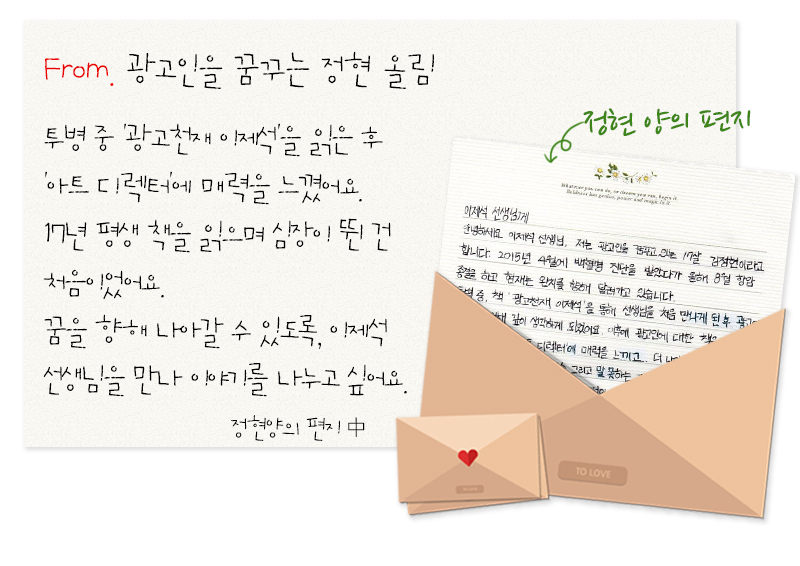 From. 광고인을 꿈꾸는 정현 올림
투병 중 '광고천재 이제석'을 읽은 후
'아트 디렉터'에 매력을 느꼈어요.
17년 평생 책을 읽으며 심장이 뛴 건
처음이었어요.
꿈을 향해 나아갈 수 있도록, 이제석
선생님을 만나 이야기를 나누고 싶어요.
정현양의 편지 中
정현 양의 편지
Whatever you can do, or dream you can, begin it.
Boldness has genius, power and magic in it.
이제석 선생님께
안녕하세요 이제석 선생님. 저는 광고인을 꿈꾸고 있는 17살 김정현이라고
합니다. 2015년 4월에 백혈병 진단을 받았다가 올해 8월 항암
종결을 하고 현재는 완치를 향해 달려가고 있습니다.
중, 책 '광고천재 이제석'을 통해 선생님을 처음 만나게 된 후
깊이 생각하게 되었어요. 이후에 광고인에 대한
디렉터'에 매력을 느끼고... 더
그리고 말 못하는
TO LOVE